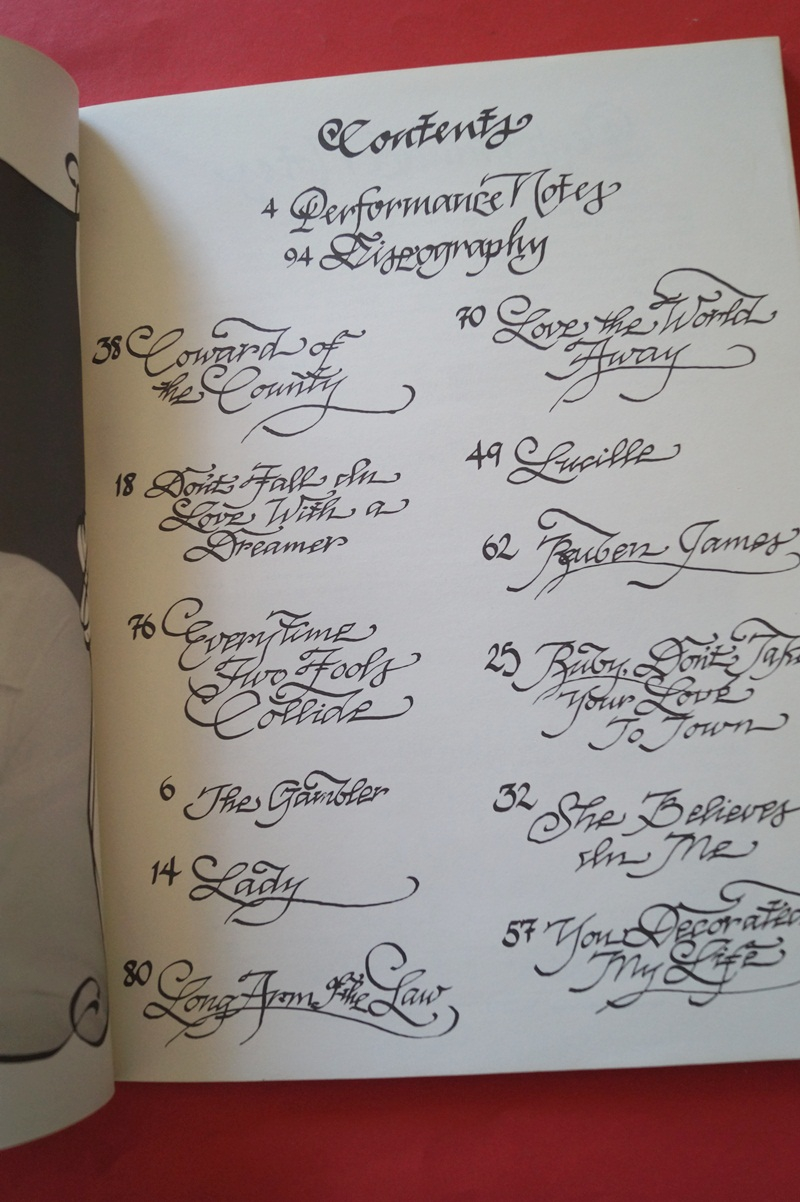 Contents
4 Performance Notes
94 Discography
38 Coward of
the County
18 Don't Fall In
Love With a
Dreamer
76 Everytime
Two Fools
Collide
6 The Gambler
14 Lady
80 Long Arm of the Law
70 Love the World
Away
49 Lucille
62 Reuben James
25 Ruby, Don't Take
Your Love
To Town
32 She Believes
In Me
57 You Decorated
My Life